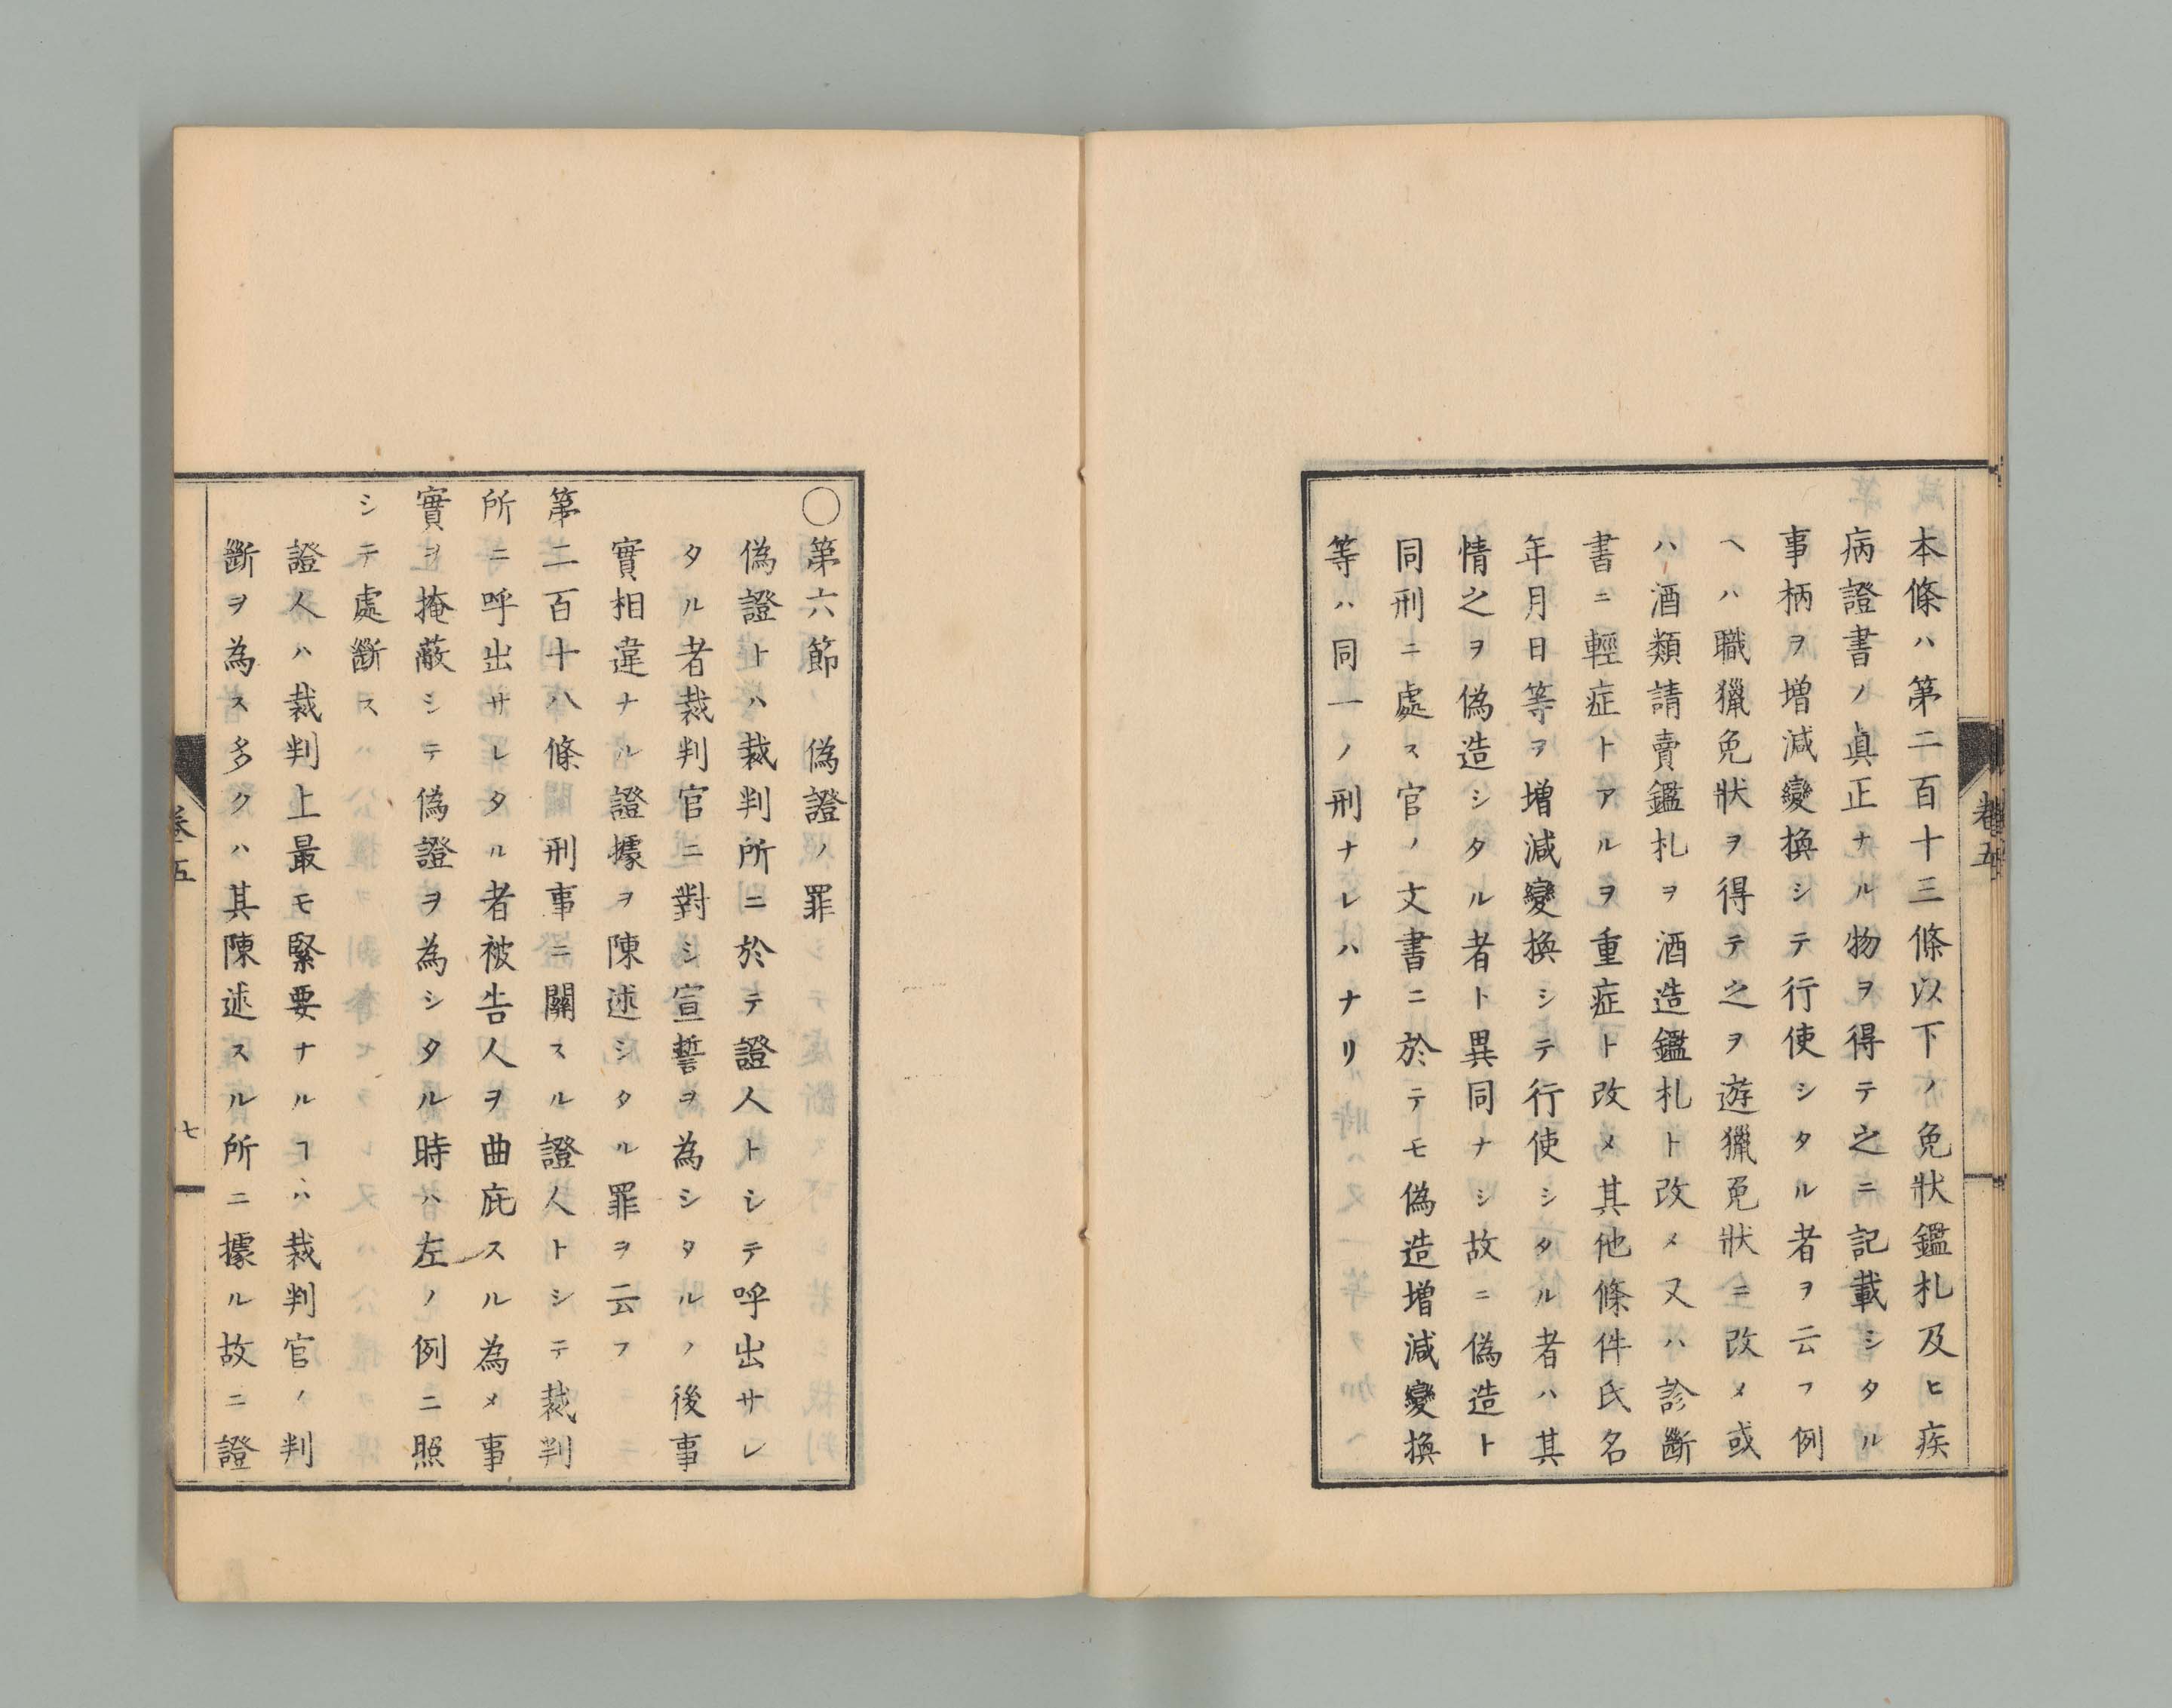 本條ハ第二百十三條以下ノ免狀鑑札及ヒ疾
病證書ノ眞正ナル物ヲ得テ之ニ記載シタル
事柄ヲ増減變換シテ行使シタル者ヲ云フ例
ヘハ職獵免狀ヲ得テ之ヲ遊獵免狀ニ改メ或
ハ酒類請賣鑑札ヲ酒造鑑札ト改メ又ハ診斷
書ニ輕症トアルヲ重症ト改メ其他條件氏名
年月日等ヲ増減變換シテ行使シタル者ハ其
情之ヲ偽造シタル者ト異同ナシ故ニ偽造ト
同刑ニ處ス官ノ文書ニ於テモ偽造増減變換
等ハ同一ノ刑ナレハナリ
卷五
〇第六節 偽證ノ罪
偽證トハ裁判所ニ於テ證人トシテ呼出サレ
タル者裁判官ニ對シ宣誓ヲ為シタルノ後事
實相違ナル證據ヲ陳述シタル罪ヲ云フ
第二百十八條 刑事ニ關スル證人トシテ裁判
所ニ呼出サレタル者被告人ヲ曲庇スル為メ事
實ヲ掩蔽シテ偽證ヲ為シタル時ハ左ノ例ニ照
シテ處斷ス
證人ハ裁判上最モ緊要ナルヿハ裁判官ノ判
斷ヲ為ス多クハ其陳述スル所ニ據ル故ニ證
卷五
七